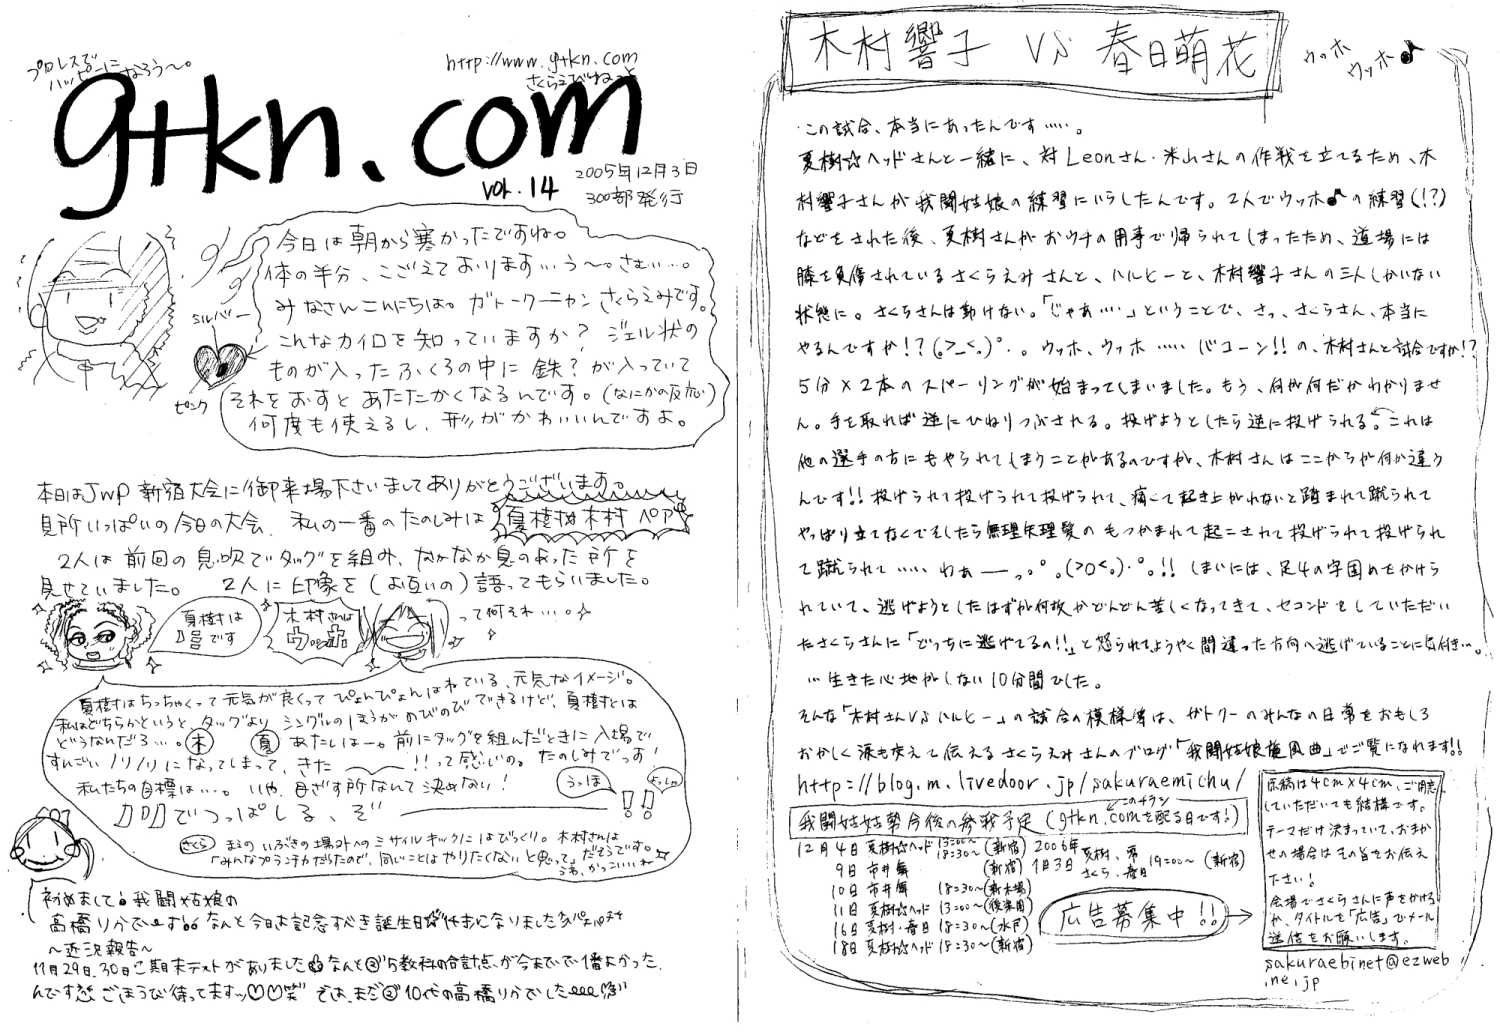 プロレスで
ハッピーになろう〜。
http://www.gtkn.com
さくらえびねっと
gtkn.com
vol.14
2005年12月3日
300部発行
今日は朝から寒かったですね。
体の半分、こごえております…う〜。さむい…。
みなさんこんにちは。ガトークーニャンさくらえみです。
こんなカイロを知っていますか？ジェル状の
ものが入ったふくろの中に鉄？が入っていて
それをおすとあたたかくなるんです。(なにかの反応)
何度も使えるし、形がかわいいんですよ。
シルバー
ピンク
本日はJWP新宿大会に御来場下さいましてありがとうございます。
見所いっぱいの今日の大会、私の一番のたのしみは 夏樹&木村 ペア
2人は前回の息吹でタッグを組み、なかなか息のあった所を
見せていました。 2人に印象を(お互いの)語ってもらいました。
夏樹は
です
木村さんは
ウッホ
って何それ…。
夏樹はちっちゃくって元気が良くってぴょんぴょんはねている、元気なイメージ。
私はどちらかというと、タッグより シングルのほうが のびのびできるけど、夏樹とは
どうなんだろ…。 木 夏 あたしはー。前にタッグを組んだときに入場で
すんごいノリノリになってしまって、きた〜!!って感じなの。たのしみでっす!
私たちの目標は…。いや、目ざす所なんて決めない!
うっほ
よっしゃ
でつっぱしる、ぞ ―― !!
さくら まえのいぶきの場外へのミサイルキックにはびっくり。木村さんは
「みんなプランチャだらけなので、同じことはやりたくないと思って」だそうです。
うわ、かっこいいね
初めまして 我闘姑娘の
高橋りかでーす なんと今日は記念すべき誕生日 才になりました
〜近況報告〜
11月29日、30日に期末テストがありました なんと 5教科の合計点が今までで1番よかった
んです ごほうび待ってますッ♡♡笑 では、まだ 10代の高橋りかでした
木村響子 VS 春日萌花
ウッホ
ウッホ♪
この試合、本当にあったんです……。
夏樹☆ヘッドさんと一緒に、対Leonさん・米山さんの作戦を立てるため、木
村響子さんが我闘姑娘の練習にいらしたんです。2人でウッホ♪の練習(!?)
などをされた後、夏樹さんがおウチの用事で帰られてしまったため、道場には
膝を負傷されているさくらえみさんと、ハルヒーと、木村響子さんの三人しかいない
状態に。さくらさんは動けない。「じゃあ……」ということで、さっ、さくらさん、本当に
やるんですか!?(。>_<。)°・。ウッホ、ウッホ……バコーン!!の、木村さんと試合ですか!?
5分×2本のスパーリングが始まってしまいました。もう、何が何だかわかりませ
ん。手を取れば逆にひねりつぶされる。投げようとしたら逆に投げられる。←これは
他の選手の方にもやられてしまうことがあるのですが、木村さんはここからが何か違う
んです!!投げられて投げられて投げられて、痛くて起き上がれないと踏まれて蹴られて
やっぱり立てなくてそしたら無理矢理髪のもつかまれて起こされて投げられて投げられ
て蹴られて……わぁ――っ。°。(>0<。)・°。!! しまいには、足4の字固めをかけら
れていて、逃げようとしたはずが何故かどんどん苦しくなってきて、セコンドをしていただい
たさくらさんに「どっちに逃げてるの!!」と怒られてようやく間違った方向へ逃げていることに気付き…。
…生きた心地がしない10分間でした。
そんな「木村さんVSハルヒー」の試合の模様等は、ガトクーのみんなの日常をおもしろ
おかしく涙も交えて伝えるさくらえみさんのブログ「我闘姑娘旋風曲」でご覧になれます!!
http://blog.m.livedoor.jp/sakuraemichu/
我闘姑娘勢今後の参戦予定(gtkn.comを配る日です!)
このチラシ
12月4日 夏樹☆ヘッド 13:00〜 18:30〜(新宿)
9日 市井舞 (新宿)
10日 市井舞 18:30〜(新木場)
11日 夏樹☆ヘッド 13:00〜(後楽園)
16日 夏樹・春日 18:30〜(水戸)
18日 夏樹☆ヘッド 18:30〜(新宿)
2006年
1月3日 夏樹、希 さくら、春日 19:00〜 (新宿)
広告募集中!!
原稿は4cm×4cm、ご用意
していただいても結構です。
テーマだけ決まっていて、おまか
せの場合はその旨をお伝え
下さい!
会場でさくらさんに声をかける
か、タイトルを「広告」でメール
送信をお願いします。
sakuraebinet@ezweb
.ne.jp